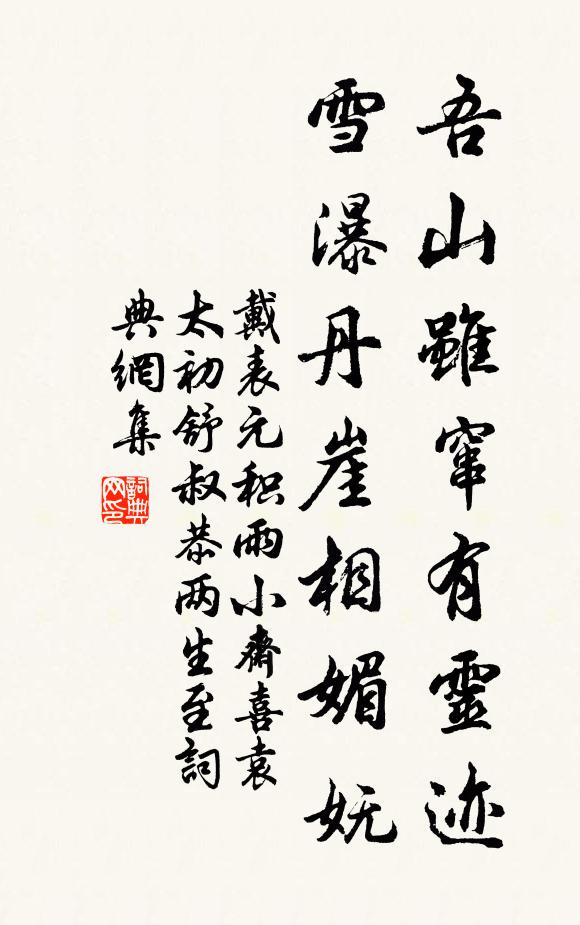 吾山雖窜有靈迹
雪瀑丹崖相媚妩
戴表元积雨小齋喜袁
太初舒叔恭两生至詞
典網集
詞典
网印